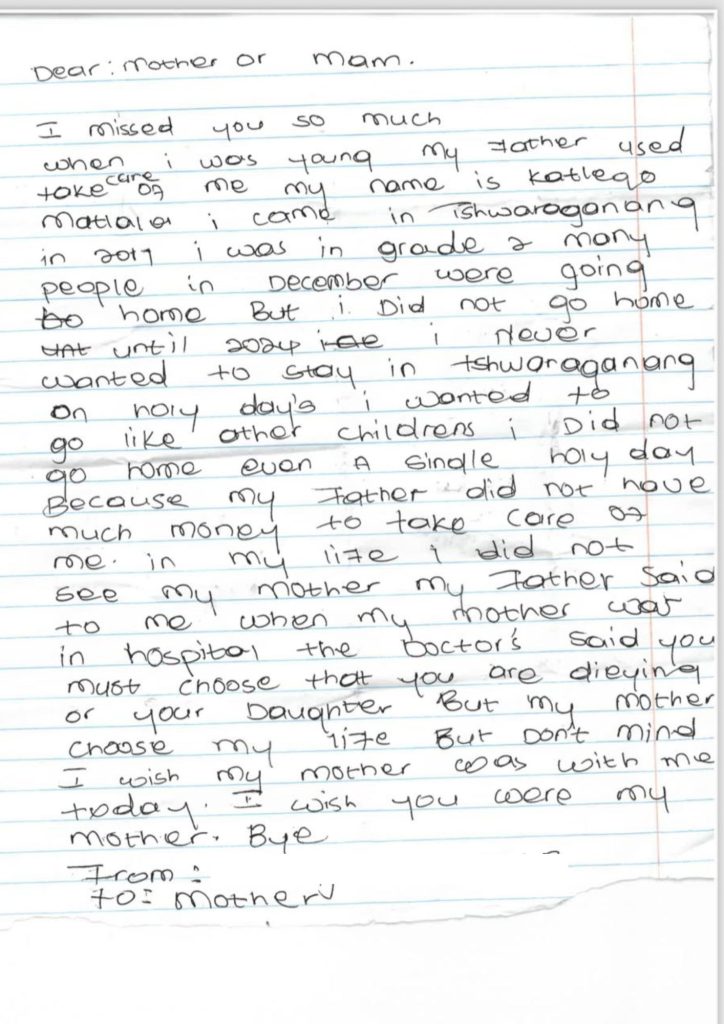 Dear: Mother or Mam.
I missed you so much
when i was young my Father used
take care of me my name is Katlego
Matlala i came in Tshwaraganang
in 2017 i was in grade 2 many
people in December were going
to home But i Did not go home
unt until 2024 i i Never
wanted to stay in tshwaraganang
on holy day's i wanted to
go like other childrens i Did not
go home even A single holy day
Because my Father did not have
much money to take care of
me. in my life i did not
see my mother my Father said
to me when my mother was
in hospital the Doctor's said you
must choose that you are dieying
or your Daughter But my mother
choose my life But Don't mind
I wish my mother was with me
today. I wish you were my
mother. Bye
From:
to: Mother